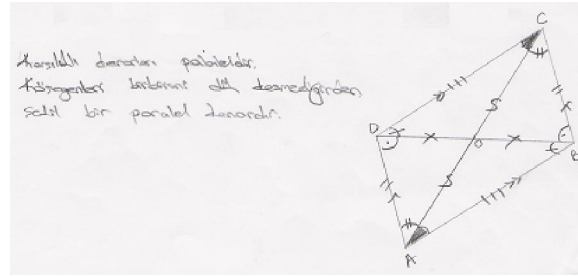 Karşılıklı kenarları paraleldir.
Köşegenleri birbirini dik kesmediğinden
şekil bir paralel kenardır.
C
D
O
B
A